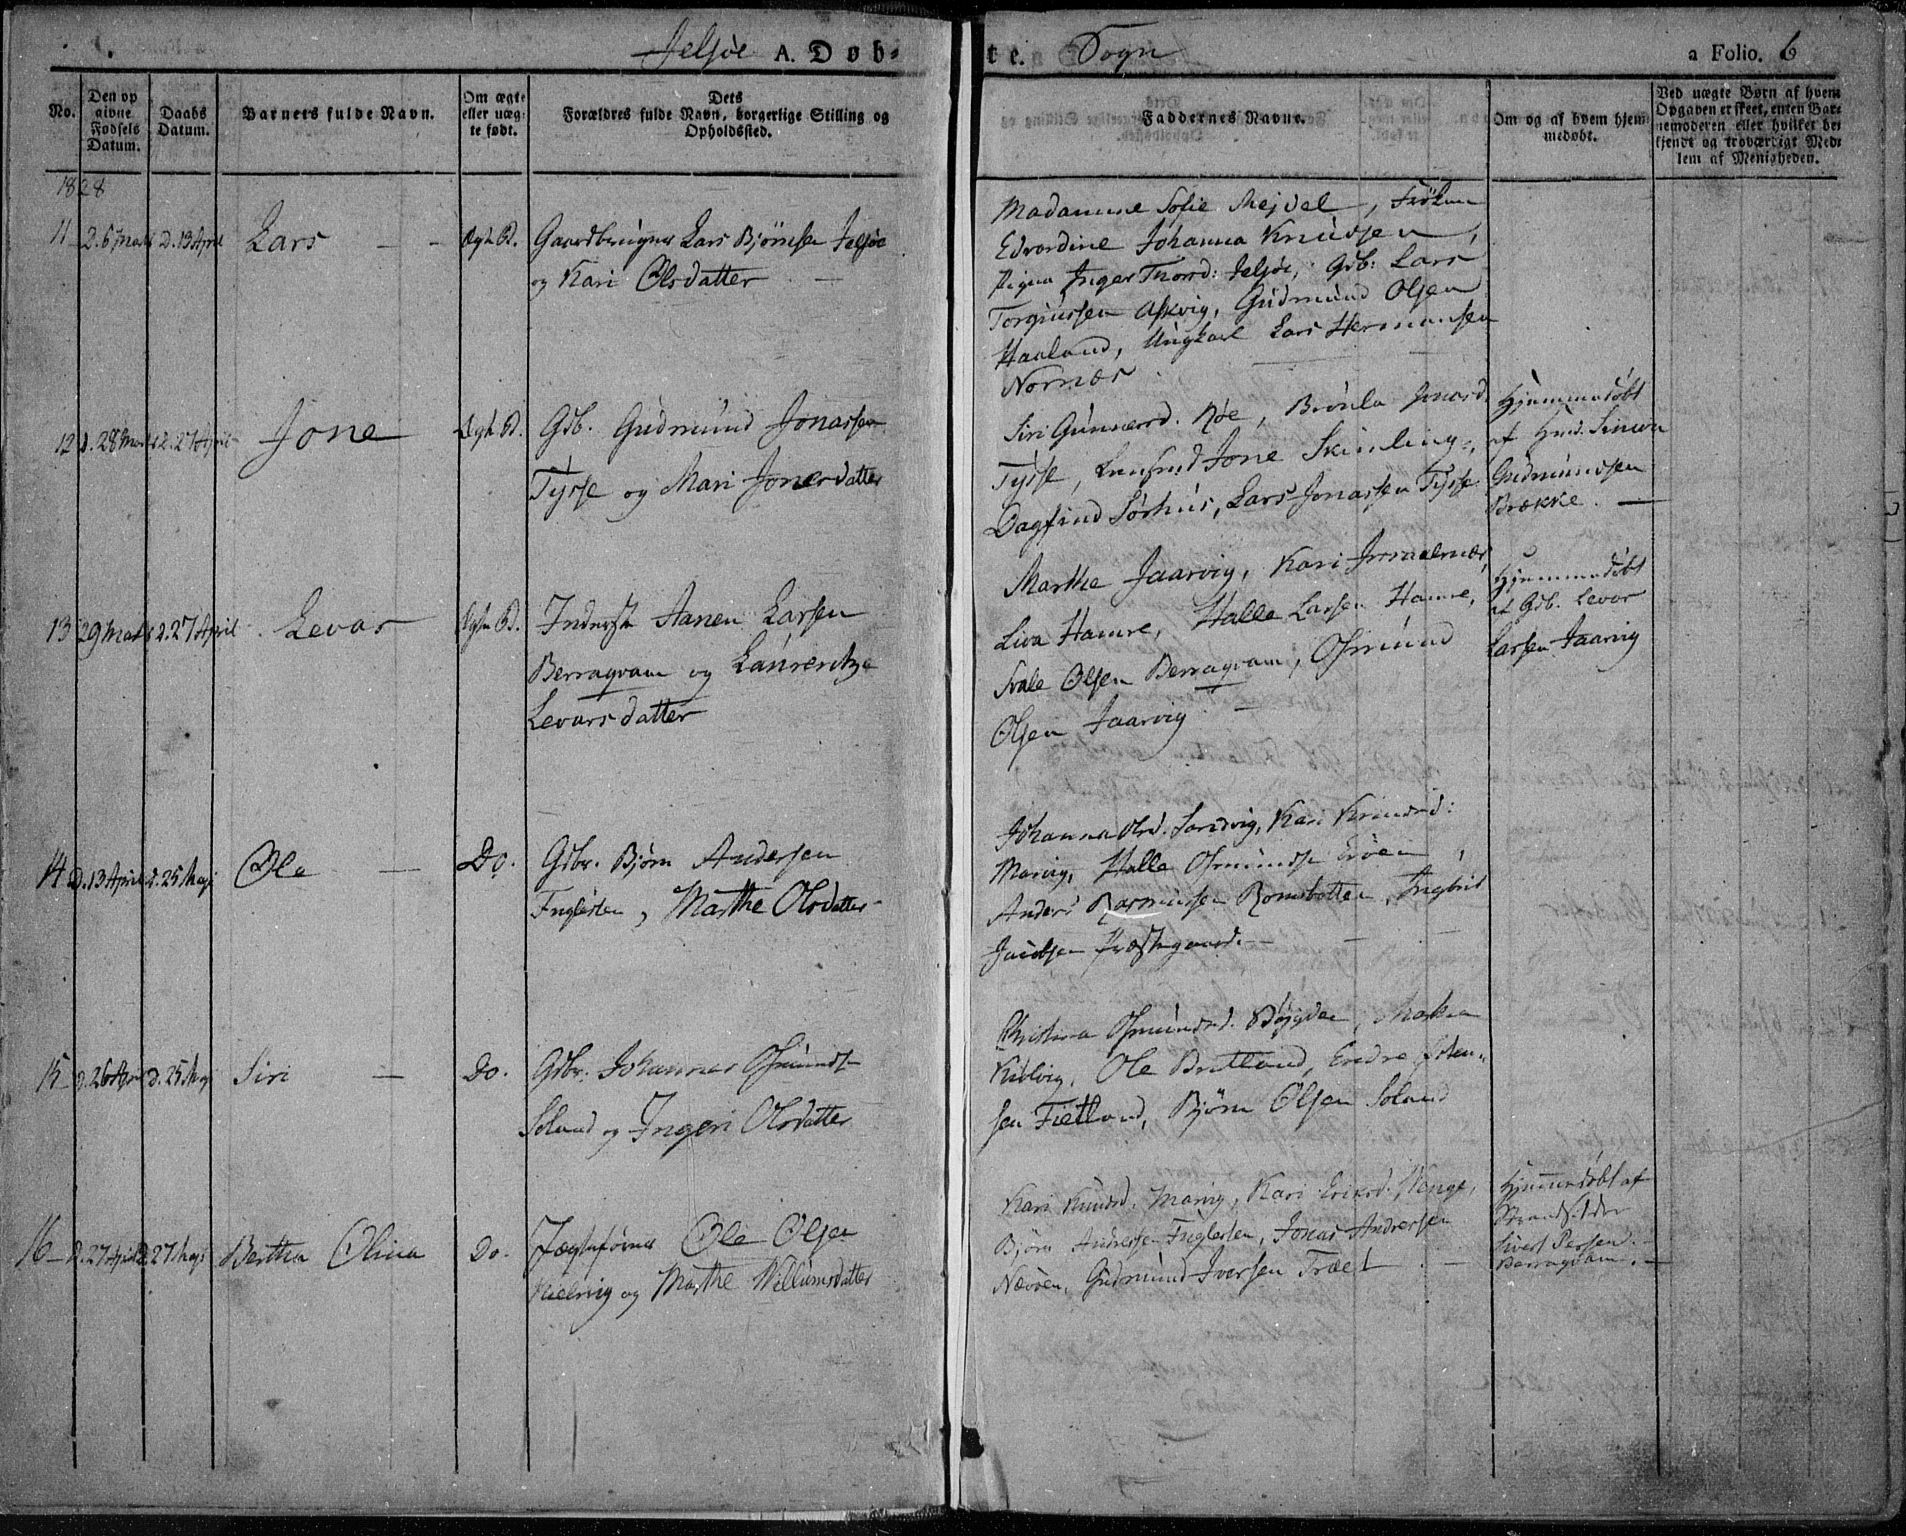 Jelsøe A. Døb-
te. Sogn
a Folio. 6
No.
Den op
givne
Fødsels
Datum.
Daabs
Datum.
Barnets fulde Navn.
Om ægte
eller uæg-
te født.
Dets
Forældres fulde Navn, borgerlige Stilling og
Opholdssted.
Faddernes Navne.
Om og af hvem hjem-
medøbt.
Ved uægte Børn af hvem
Opgaven er skeet, enten Bar-
nemoderen eller hvilket be-
kjendt og troværdigt Med-
lem af Menigheden.
1828
11 D. 6 Marts D. 13 April Lars Ægte B.
Gaardbruger Lars Bjørnsen Jelsøe
og Kari Olsdatter
Madamme Sofie Mejdel, Frøken
Edvardine Johanna Knudsen,
Pigen Inger Thorsd: Jelsøe, Gdb: Lars
Torgiussen Askvig, Gudmund Olsen
Haaland, Ungkarl Lars Hermansen
Nornæs
12 D. 28 Marts D. 27 April Jone Ægte B.
Gdb. Gudmund Jonassen
Tysse og Mari Jonesdatter
Siri Gunnarsd. Røe, Jonasd.
Tysse, Jone
Dagfind Sørhus, Lars Jonassen Tysse
Hjemmedøbt
af Simon
Gudmundsen
Brække
13 29 Marts D. 27 April Levor Ægte B.
Inderst Aanen Larsen
Berraqvam og Laurentze
Levorsdatter
Marthe Jaarvig, Kari
Liva Hamre, Halle Larsen Hamre,
Svale Olsen Berraqvam, Osmund
Olsen Jaarvig
Hjemmedøbt
af Gdb. Levor
Larsen Jaarvig
14 D. 13 April D. 25 Maj Ole Do.
Gdbr. Bjørn Andersen
Fuglesten, Marthe Olsdatter
Johanna Olsd. Sandvig, Kari Knudsd:
Marvig, Halle Osmundsen
Anders Rasmussen Romsbotten, Ingbrit
Jacobsen Præstegaard.
15 D. 26 April D. 25 Maj Siri Do.
Gdbr. Johannes Osmunds
Soland og Ingeri Olsdatter
Christina Osmundsd. Bøigden,
Kilvig, Ole Bratland, Endre Osten-
sen Tietland, Bjørn Olsen Soland
16 D. 27 April D. 27 Maj Bertha Olina Do.
Jægteføree Ole Olsen
Kielvig og Marthe Villumsdatter
Kari Knudsd. Marvig, Kari Eriksd. Vange,
Bjørn Andersen Fuglesten, Jonas Andersen
Nævøen, Gudmund Iversen Træet
Hjemmedøbt af
Strandsidder
Sivert Persen
Berraqvam.